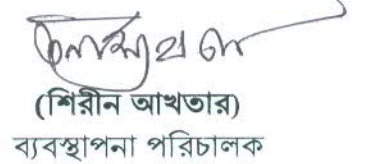 (শিরীন আখতার)
ব্যবস্থাপনা পরিচালক